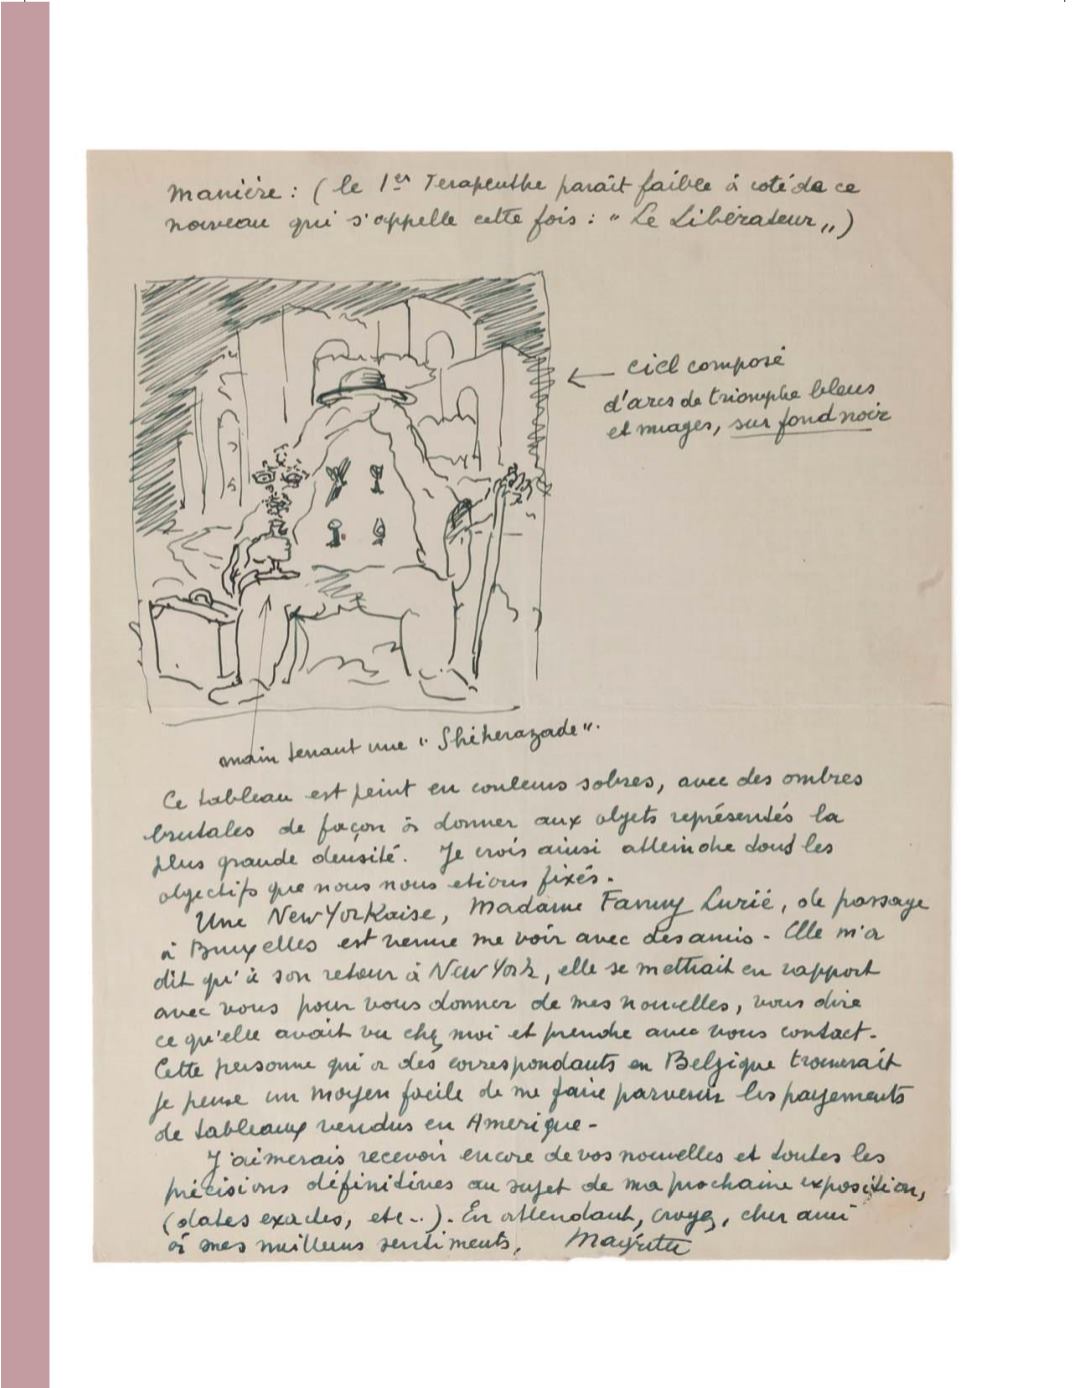 manière : ( le 1er Terapeuthe paraît faible à coté de ce
nouveau qui s'appelle cette fois : " Le Libérateur „ )
ciel composé
d'arcs de triomphe bleus
et nuages, sur fond noir
main tenant une " Shéherazade ".
Ce tableau est peint en couleurs sobres, avec des ombres
brutales de façon à donner aux objets représentés la
plus grande densité. Je crois ainsi atteindre tous les
objectifs que nous nous etions fixés.
Une NewYorKaise, Madame Fanny Lurié, de passage
à Bruxelles est venue me voir avec des amis - Elle m'a
dit qu'à son retour à New York, elle se mettrait en rapport
avec vous pour vous donner de mes nouvelles, vous dire
ce qu'elle avait vu chez moi et prendre avec vous contact -
Cette personne qui a des correspondants en Belgique trouverait
je pense un moyen facile de me faire parvenir les payements
de tableaux vendus en Amerique -
J'aimerais recevoir encore de vos nouvelles et toutes les
précisions définitives au sujet de ma prochaine exposition,
(dates exactes, etc..). En attendant, croyez, cher ami
à mes meilleurs sentiments, Magritte